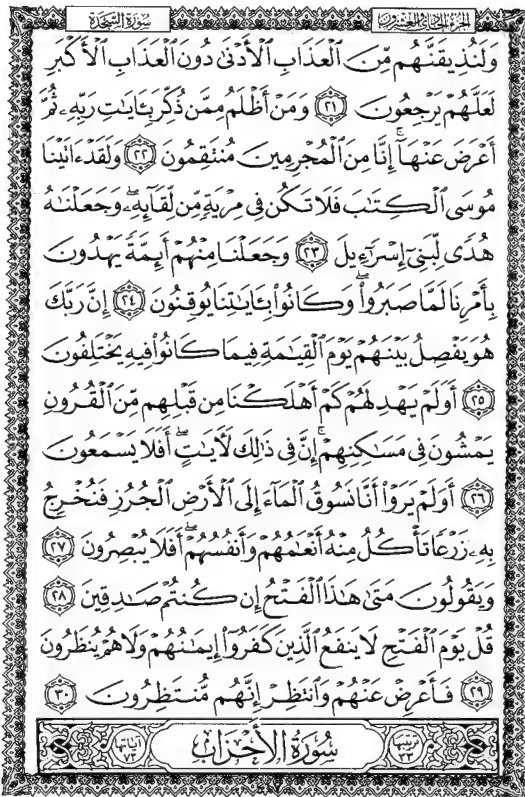 الجزء الحادي والعشرون سُورَةُ السَّجْدَةِ
وَلَنُذِيقَنَّهُم مِّنَ ٱلْعَذَابِ ٱلْأَدْنَىٰ دُونَ ٱلْعَذَابِ ٱلْأَكْبَرِ
لَعَلَّهُمْ يَرْجِعُونَ ٢١ وَمَنْ أَظْلَمُ مِمَّن ذُكِّرَ بِـَٔايَٰتِ رَبِّهِۦ ثُمَّ
أَعْرَضَ عَنْهَآ ۚ إِنَّا مِنَ ٱلْمُجْرِمِينَ مُنتَقِمُونَ ٢٢ وَلَقَدْ ءَاتَيْنَا
مُوسَى ٱلْكِتَٰبَ فَلَا تَكُن فِى مِرْيَةٍ مِّن لِّقَآئِهِۦ ۖ وَجَعَلْنَٰهُ
هُدًى لِّبَنِىٓ إِسْرَٰٓءِيلَ ٢٣ وَجَعَلْنَا مِنْهُمْ أَئِمَّةً يَهْدُونَ
بِأَمْرِنَا لَمَّا صَبَرُوا۟ ۖ وَكَانُوا۟ بِـَٔايَٰتِنَا يُوقِنُونَ ٢٤ إِنَّ رَبَّكَ
هُوَ يَفْصِلُ بَيْنَهُمْ يَوْمَ ٱلْقِيَٰمَةِ فِيمَا كَانُوا۟ فِيهِ يَخْتَلِفُونَ
٢٥ أَوَلَمْ يَهْدِ لَهُمْ كَمْ أَهْلَكْنَا مِن قَبْلِهِم مِّنَ ٱلْقُرُونِ
يَمْشُونَ فِى مَسَٰكِنِهِمْ ۚ إِنَّ فِى ذَٰلِكَ لَءَايَٰتٍ ۖ أَفَلَا يَسْمَعُونَ
٢٦ أَوَلَمْ يَرَوْا۟ أَنَّا نَسُوقُ ٱلْمَآءَ إِلَى ٱلْأَرْضِ ٱلْجُرُزِ فَنُخْرِجُ
بِهِۦ زَرْعًا تَأْكُلُ مِنْهُ أَنْعَٰمُهُمْ وَأَنفُسُهُمْ ۖ أَفَلَا يُبْصِرُونَ ٢٧
وَيَقُولُونَ مَتَىٰ هَٰذَا ٱلْفَتْحُ إِن كُنتُمْ صَٰدِقِينَ ٢٨
قُلْ يَوْمَ ٱلْفَتْحِ لَا يَنفَعُ ٱلَّذِينَ كَفَرُوٓا۟ إِيمَٰنُهُمْ وَلَا هُمْ يُنظَرُونَ
٢٩ فَأَعْرِضْ عَنْهُمْ وَٱنتَظِرْ إِنَّهُم مُّنتَظِرُونَ ٣٠
ترتيبها ٣٣ سُورَةُ الأَحْزَابِ آياتها ٧٣